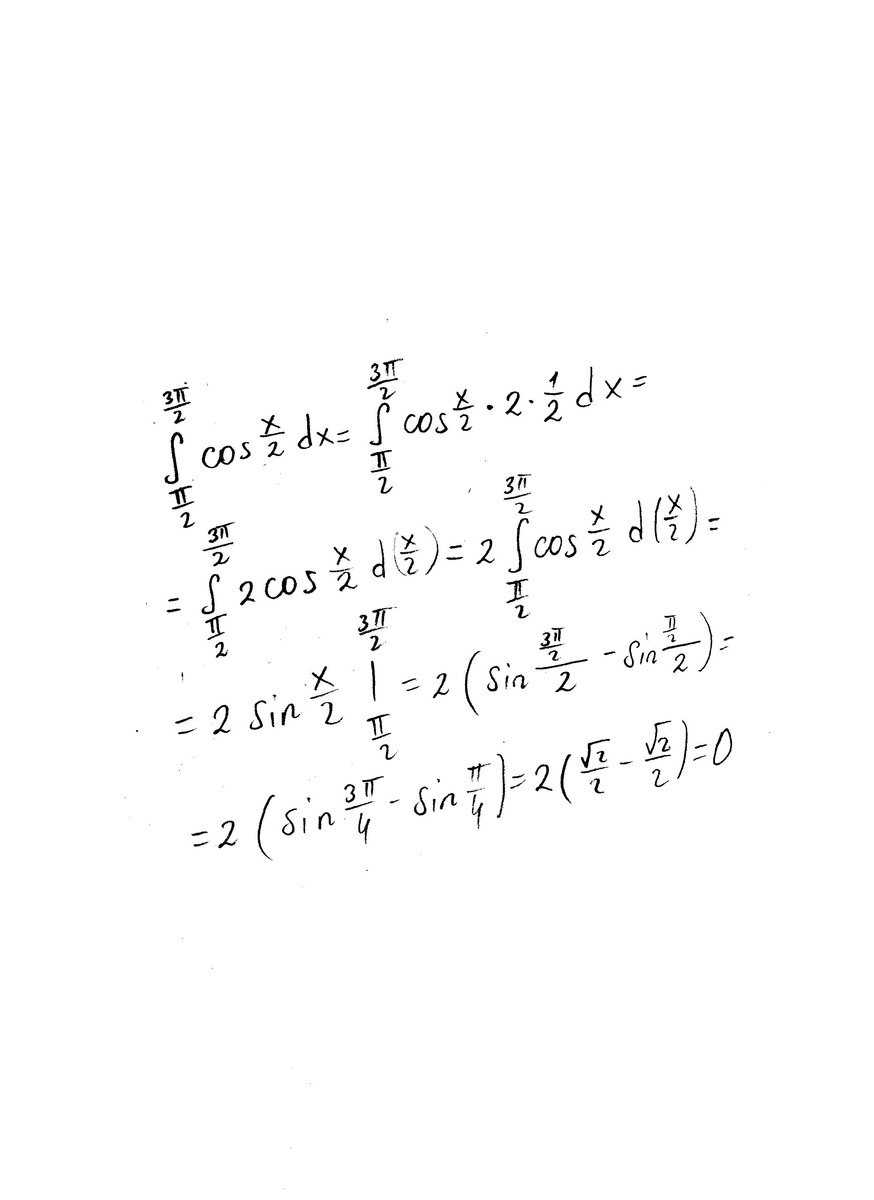 ∫_{π/2}^{3π/2} cos x/2 dx = ∫_{π/2}^{3π/2} cos x/2 · 2 · 1/2 dx =
= ∫_{π/2}^{3π/2} 2 cos x/2 d(x/2) = 2 ∫_{π/2}^{3π/2} cos x/2 d(x/2) =
= 2 sin x/2 |_{π/2}^{3π/2} = 2 (sin (3π/2)/2 - sin (π/2)/2) =
= 2 (sin 3π/4 - sin π/4) = 2 (√2/2 - √2/2) = 0